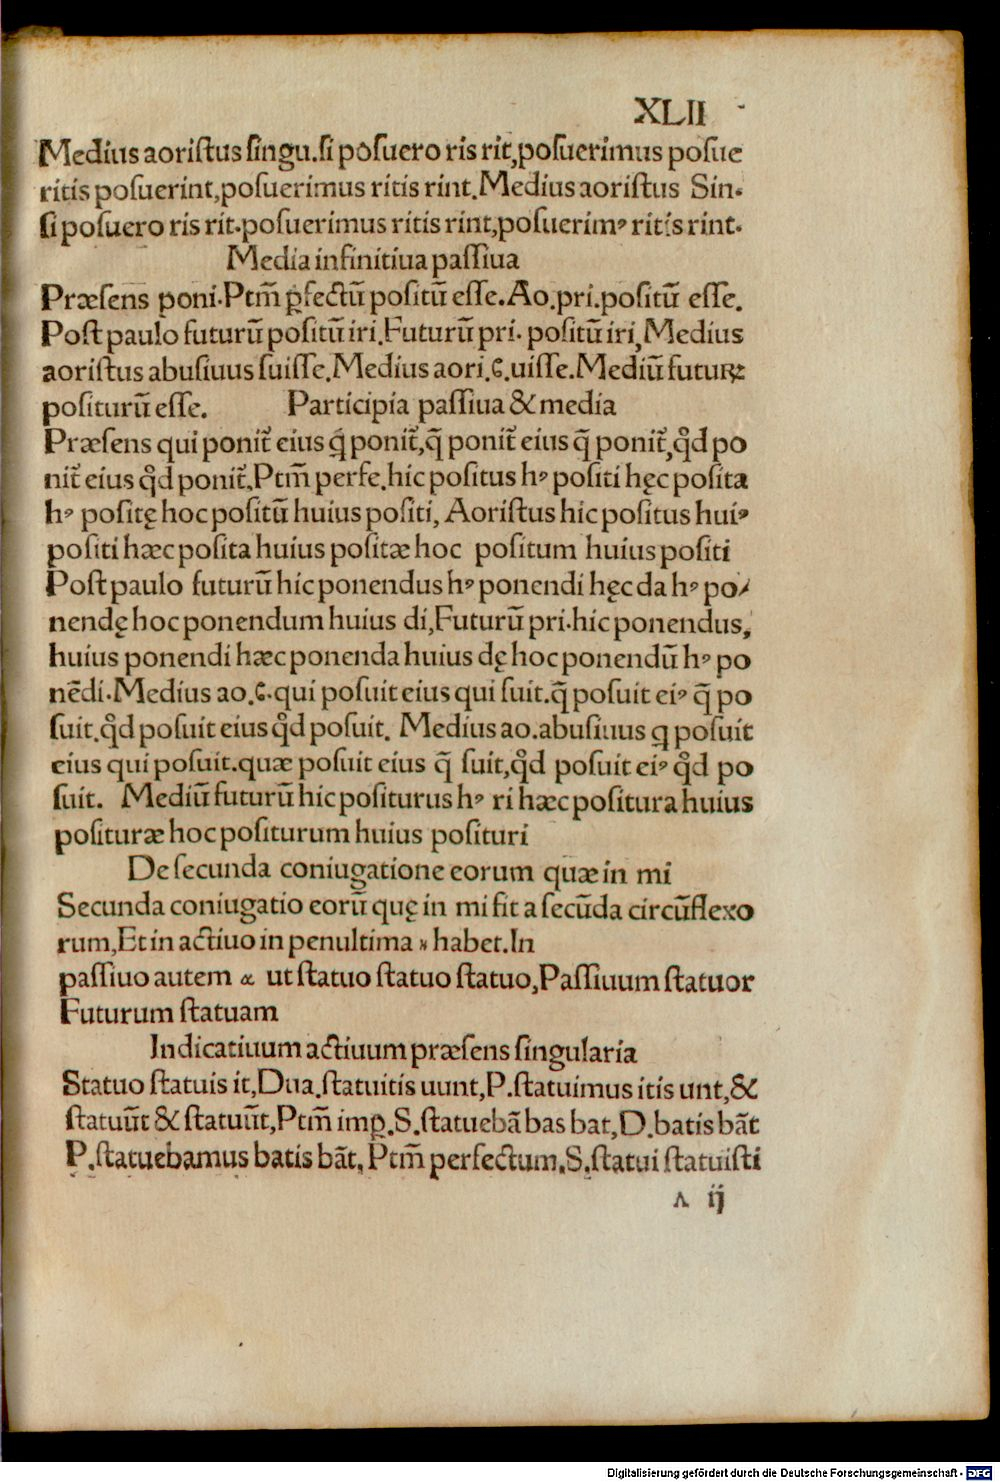 XLII
Medius aoriſtus ſingu.ſi poſuero ris rit,poſuerimus poſue
ritis poſuerint,poſuerimus ritis rint.Medius aoriſtus Sin.
ſi poſuero ris rit.poſuerimus ritis rint,poſuerimꝰ ritis rint.
Media infinitiua paſſiua
Præſens poni.Ptm̄ ꝑfectū poſitū eſſe.Ao.pri.poſitū eſſe.
Poſt paulo futurū poſitū iri.Futurū pri. poſitū iri,Medius
aoriſtus abuſiuus fuiſſe.Medius aori.ϛ.uiſſe.Mediū futuꝝ
poſiturū eſſe. Participia paſſiua & media
Præſens qui ponit̄ eius q̄ ponit̄,q̄ ponit̄ eius q̄ ponit̄,qͦd po
nit̄ eius qͦd ponit̄.Ptm̄ perfe.hic poſitus hꝰ poſiti hęc poſita
hꝰ poſitę hoc poſitū huius poſiti, Aoriſtus hic poſitus huiꝰ
poſiti hæc poſita huius poſitæ hoc poſitum huius poſiti
Poſt paulo futurū hic ponendus hꝰ ponendi hęc da hꝰ po/
nendę hoc ponendum huius di,Futurū pri.hic ponendus,
huius ponendi hæc ponenda huius dę hoc ponendū hꝰ po
nēdi.Medius ao.ϛ.qui poſuit eius qui ſuit.q̄ poſuit eiꝰ q̄ po
ſuit.qͦd poſuit eius qͦd poſuit. Medius ao.abuſiuus q poſuit
eius qui poſuit.quæ poſuit eius q̄ ſuit,qͦd poſuit eiꝰ qͦd po
ſuit. Mediū futurū hic poſiturus hꝰ ri hæc poſitura huius
poſituræ hoc poſiturum huius poſituri
De ſecunda coniugatione eorum quæ in mi
Secunda coniugatio eorū quę in mi fit a ſecūda circūflexo
rum,Et in actiuo in penultima habet.In
paſſiuo autem α ut ſtatuo ſtatuo ſtatuo,Paſſiuum ſtatuor
Futurum ſtatuam
Indicatiuum actiuum præſens ſingularia
Statuo ſtatuis it,Dua.ſtatuitis uunt,P.ſtatuimus itis unt,&
ſtatuūt & ſtatuūt,Ptm̄ imꝑ.S.ſtatuebā bas bat,D.batis bāt
P.ſtatuebamus batis bāt, Ptm̄ perfectum.S.ſtatui ſtatuiſti
Λ ij
Digitalisierung gefördert durch die Deutsche Forschungsgemeinschaft - DFG